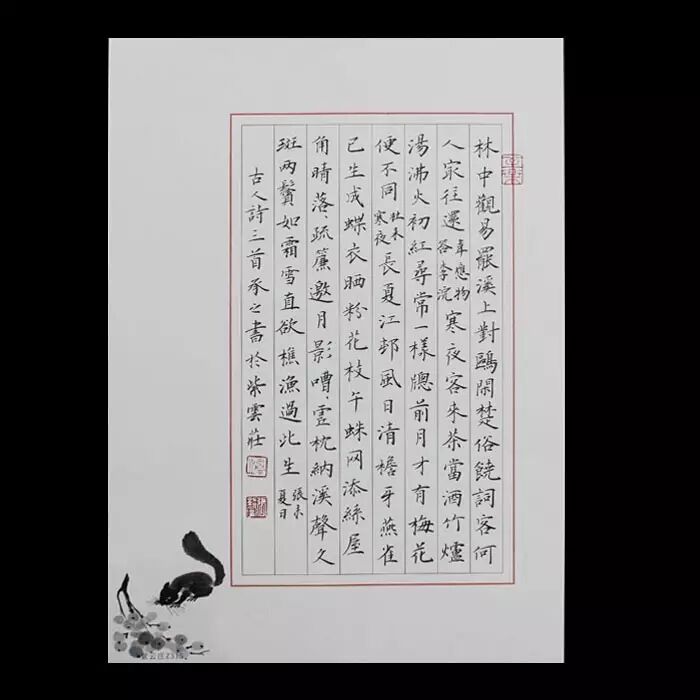 林中觀易罷溪上對鷗閑楚俗饒詞客何
人冣往還韋應物答李浣寒夜客來茶當酒竹爐
湯沸火初紅尋常一樣牕前月才有梅花
便不同杜耒寒夜長夏江邨風日清檐牙燕雀
已生成蝶衣晒粉花枝午蛛网添絲屋
角晴落、疏簾邀月影嘈、虛枕納溪聲久
斑兩鬢如霜雪直欲樵漁過此生張耒夏日
古人詩三首承之書於紫雲莊